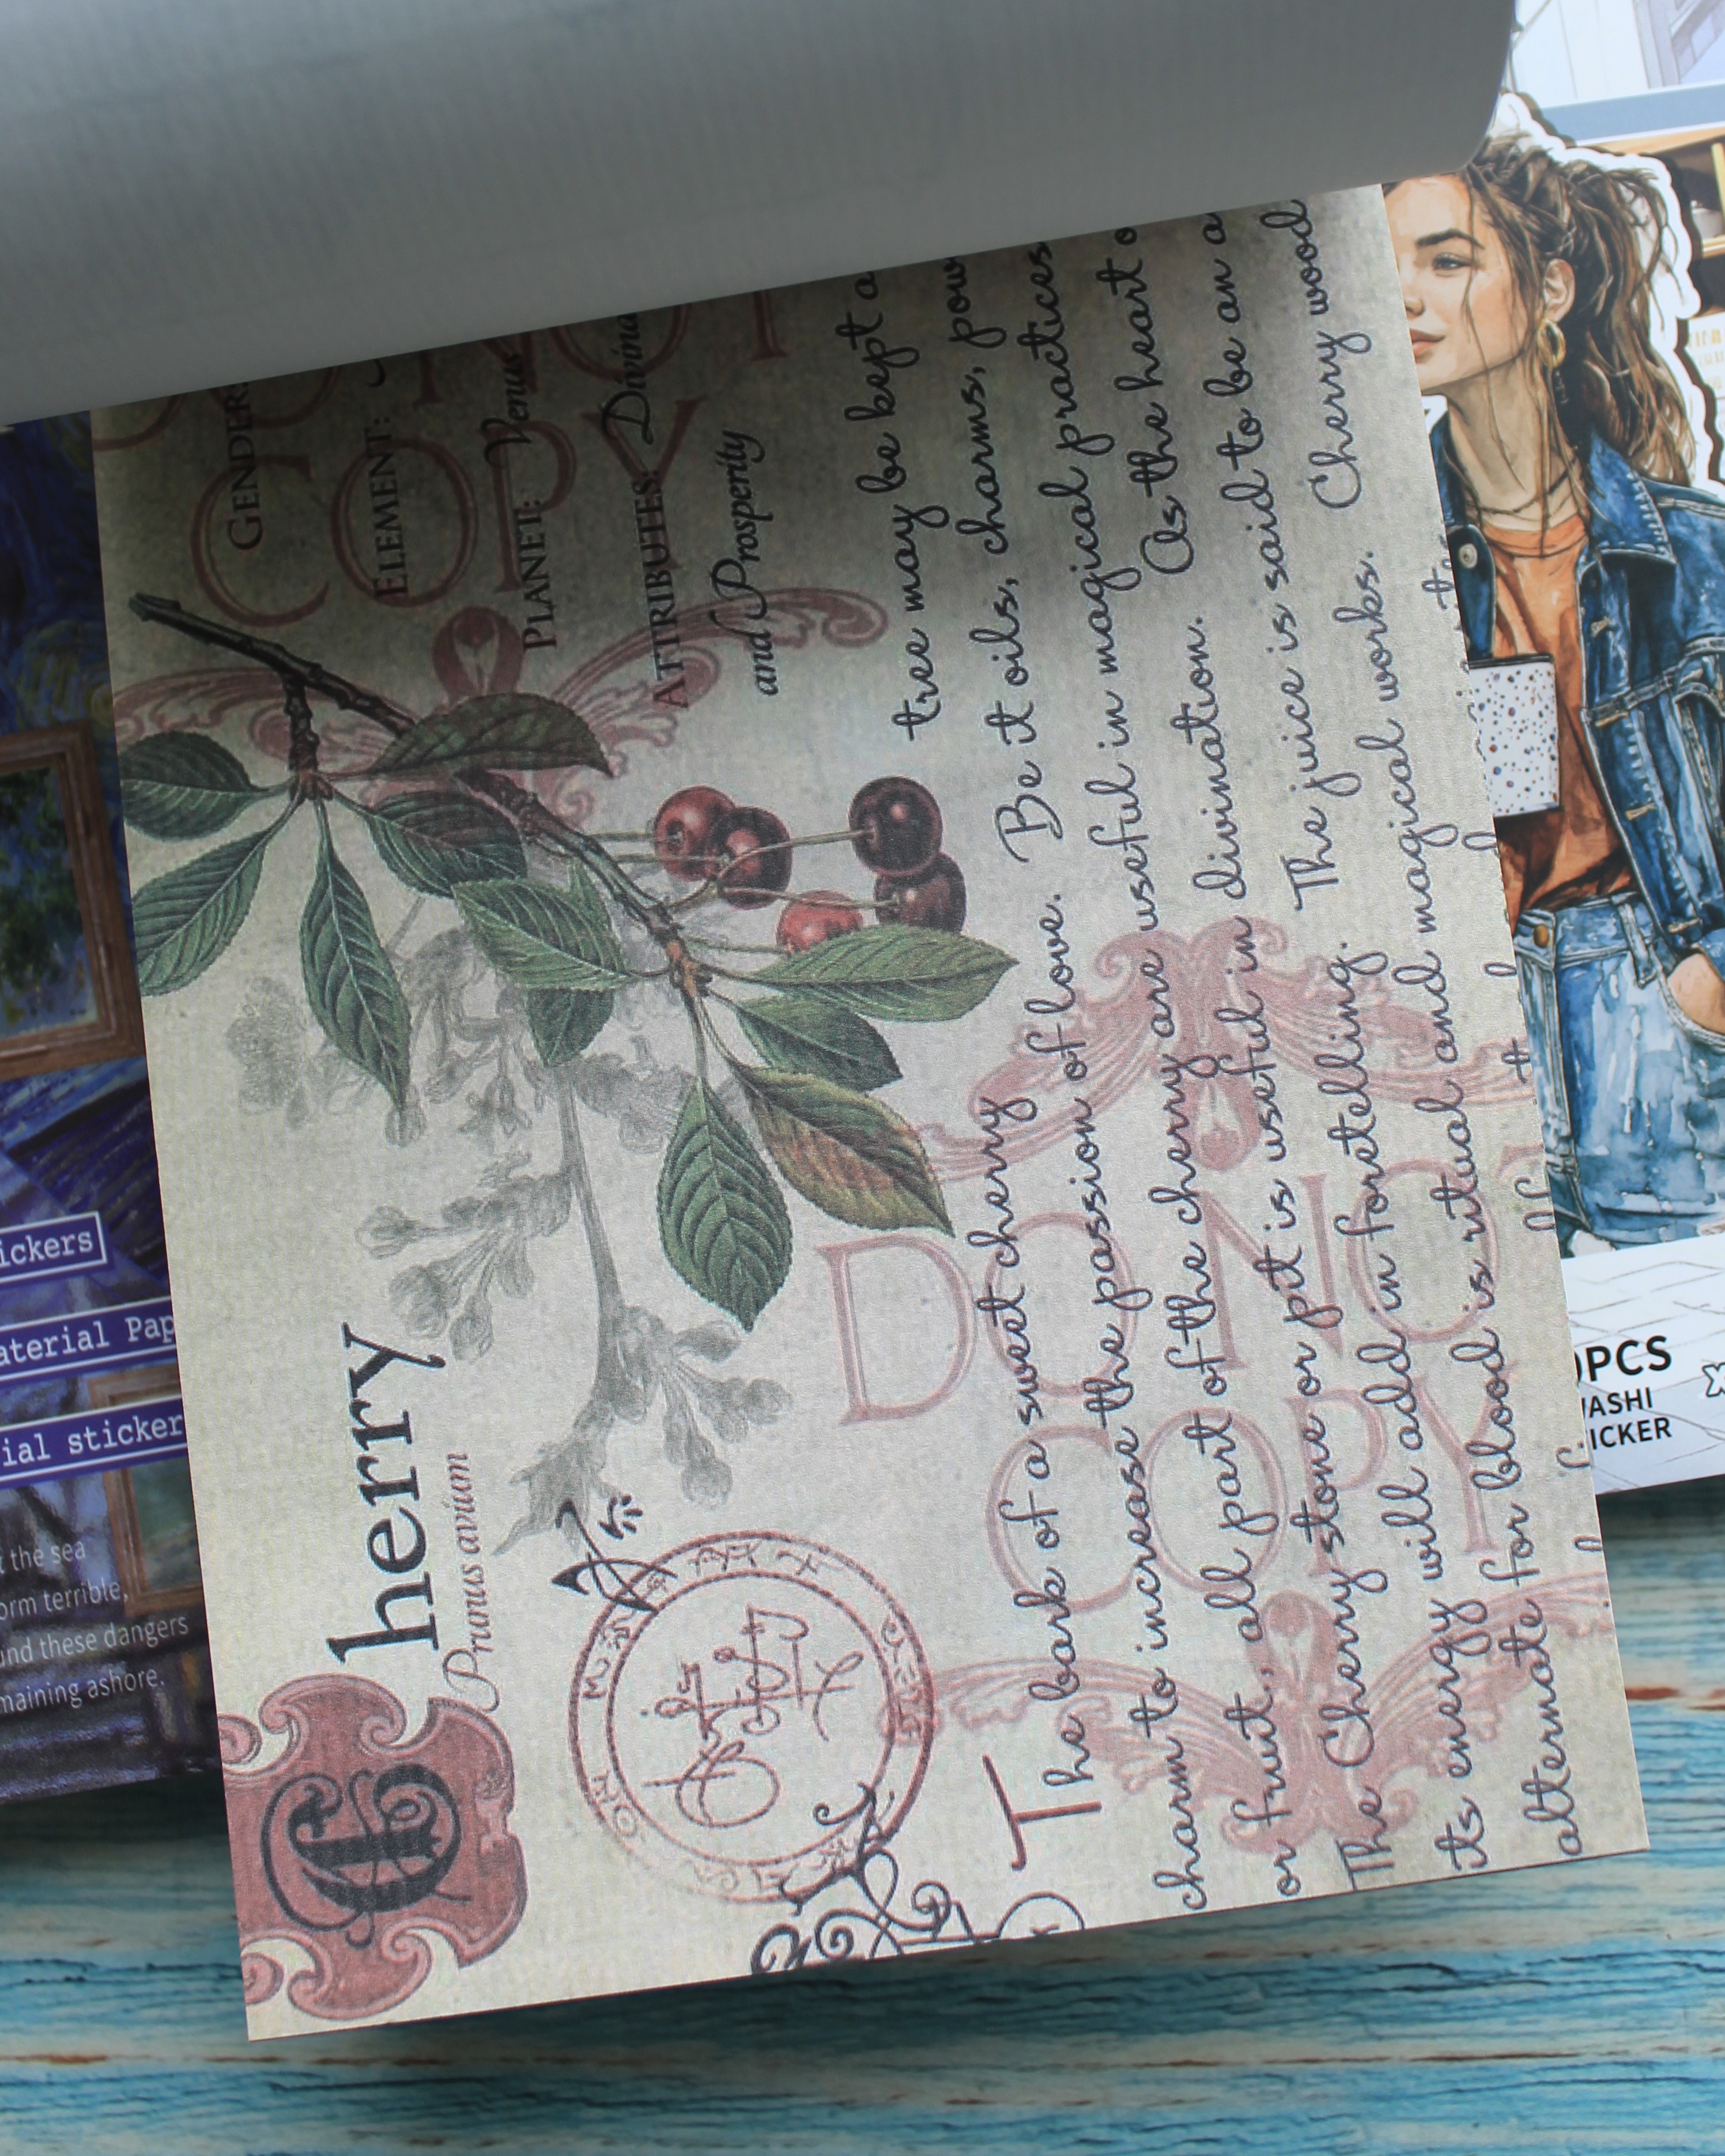 Cherry
Prunus avium
GENDER:
ELEMENT:
PLANET: Venus
ATTRIBUTES: Divina
and Prosperity
The bark of a sweet cherry tree may be kept a
charm to increase the passion of love. Be it oils, charms, pow
or fruit, all part of the cherry are useful in magical practices
The Cherry stone or pit is useful in divination. As the heart o
its energy will add in foretelling. The juice is said to be an a
alternate for blood is ritual and magical works. Cherry wood
COPY
DO NOT
COPY
ickers
aterial Pap
ial sticker
t the sea
orm terrible,
und these dangers
maining ashore.
PCS
ASHI
ICKER